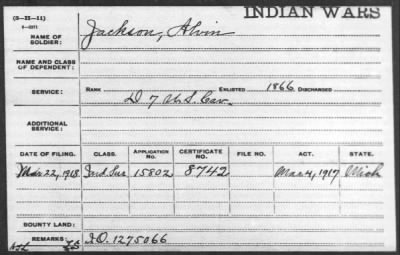 INDIAN WARS
(3-II-11)
NAME OF SOLDIER: Jackson, Alvin
NAME AND CLASS OF DEPENDENT:
SERVICE: RANK ENLISTED 1866 DISCHARGED
D 7 U.S. Cav.
ADDITIONAL SERVICE:
DATE OF FILING. CLASS. APPLICATION No. CERTIFICATE No. FILE NO. ACT. STATE.
Mar 22, 1918 Ind. Sur 15802 8742 Mar 4, 1917 Mich
BOUNTY LAND:
REMARKS: I.O. 1275066